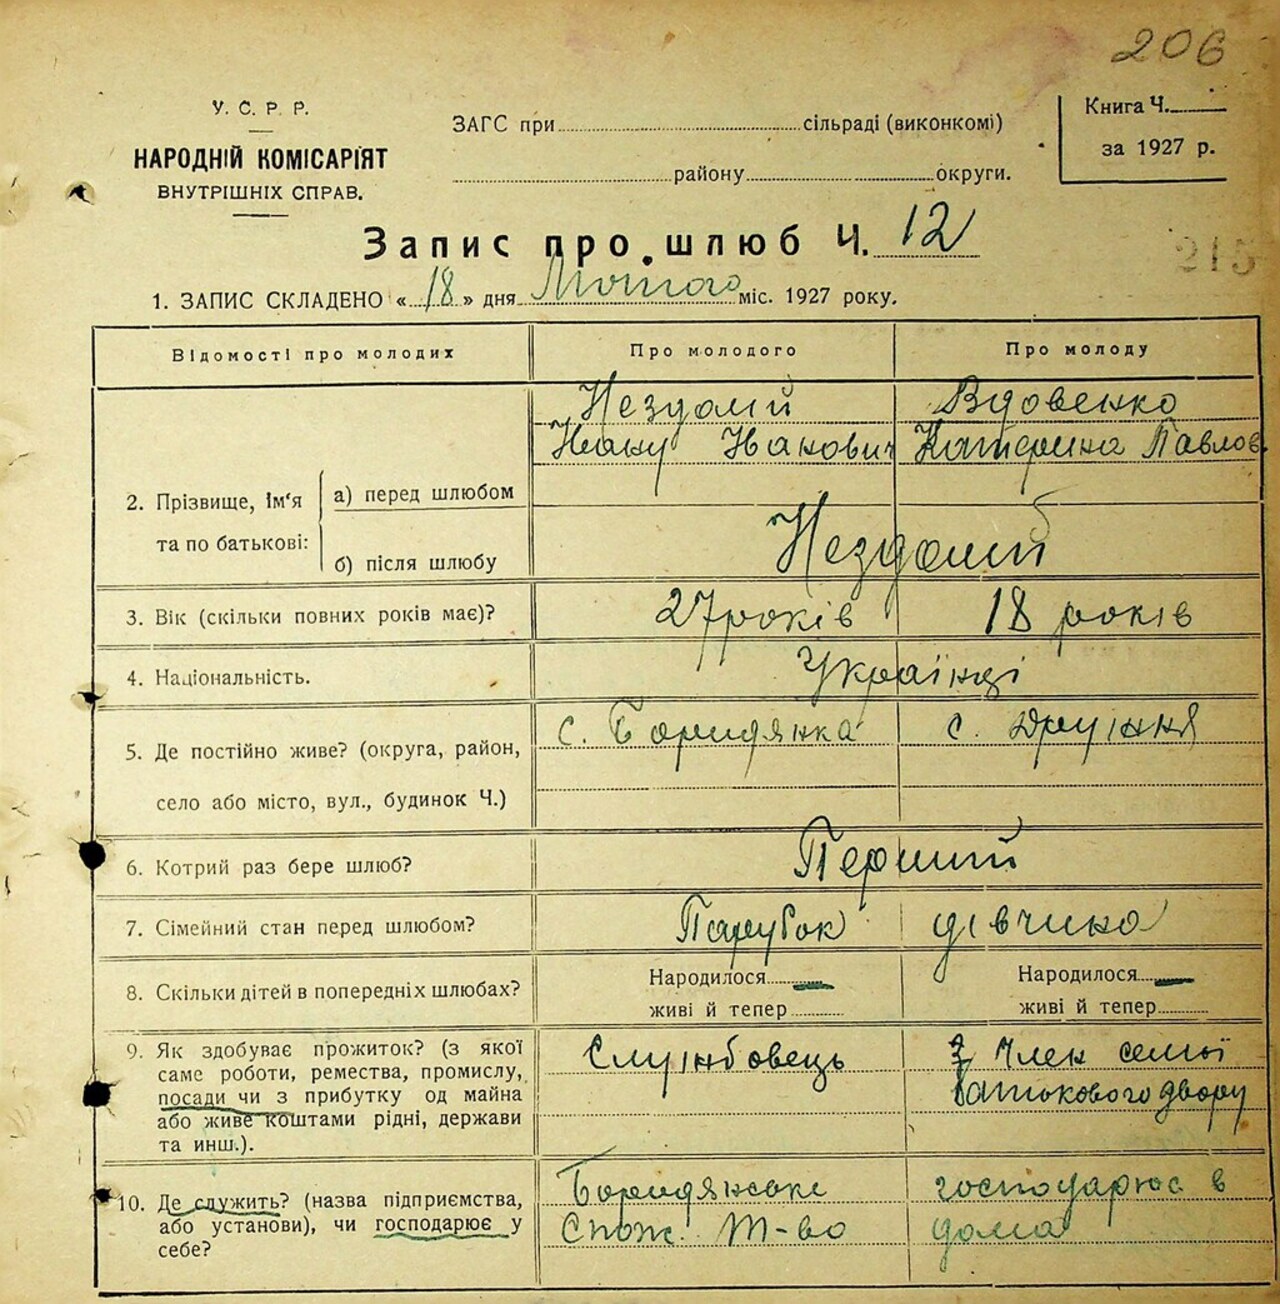 206
У. С. Р. Р.
НАРОДНІЙ КОМІСАРІЯТ
ВНУТРІШНІХ СПРАВ.
ЗАГС при сільраді (виконкомі)
району округи.
Книга Ч.
за 1927 р.
Запис про шлюб Ч. 12
215
1. ЗАПИС СКЛАДЕНО « 18 » дня Лютого міс. 1927 року.
Відомості про молодих
Про молодого
Про молоду
2. Прізвище, ім‘я та по батькові:
а) перед шлюбом
Нездолій
Іванович
Вдовенко
Катерина Павлов
б) після шлюбу
Нездолий
3. Вік (скільки повних років має)?
27 років
18 років
4. Національність.
Українці
5. Де постійно живе? (округа, район,
село або місто, вул., будинок Ч.)
с. Бородянка
с. Дружня
6. Котрий раз бере шлюб?
Перший
7. Сімейний стан перед шлюбом?
Парубок
дівчина
8. Скільки дітей в попередніх шлюбах?
Народилося
живі й тепер
Народилося
живі й тепер
9. Як здобуває прожиток? (з якої
саме роботи, ремества, промислу,
посади чи з прибутку од майна
або живе коштами рідні, держави
та инш.).
Службовець
Член семьї
батькового двору
10. Де служить? (назва підприємства,
або установи), чи господарює у
себе?
Бородянське
Спож. Т-во
господарює в
дома